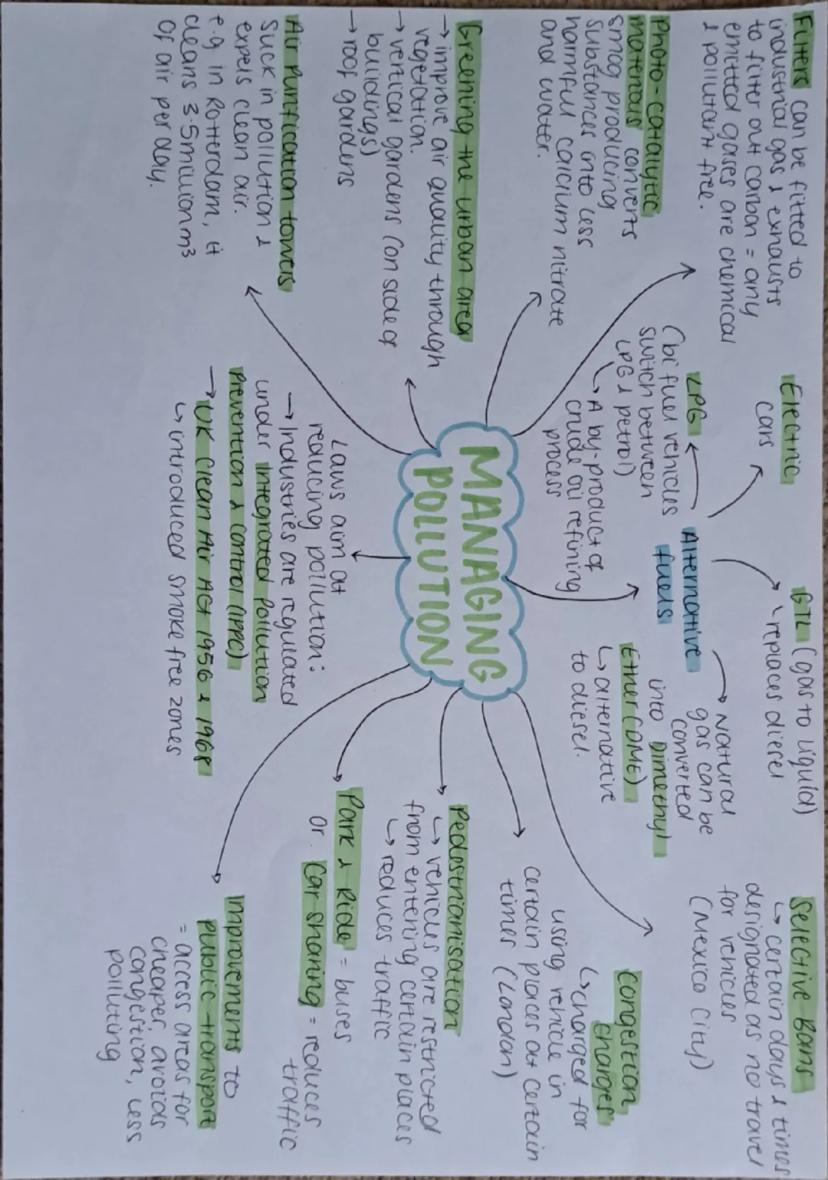 Filters can be fitted to
industrial gas & exhausts
to filter out carbon = any
emitted gases are chemical
& pollutant free.
Photo-catalytic
materials converts
smog producing
substances into less
harmful calcium nitrate
and water.
Greening the urban area
→ improve air quality through
vegetation.
→ vertical gardens (on side of
buildings)
→ roof gardens
Air Purification towers
suck in pollution &
expels clean air.
e.g. in Rotterdam, it
cleans 3.5million m3
of air per day.
Electric
cars
LPG
(bi fuel vehicles
switch between
LPG & petrol)
↳ A by-product of
crude oil refining
process
Alternative
fuels
GTL (gas to liquid)
↳ replaces diesel
→ Natural
gas can be
converted
into Dimethyl
Ether (DME)
↳ alternative
to diesel.
MANAGING
POLLUTION
Laws aim at
reducing pollution:
→ Industries are regulated
under integrated pollution
prevention & control (IPPC)
→ UK Clean Air Act 1956 & 1968
↳ introduced smoke free zones
Selective Bans
↳ certain days & times
designated as no travel
for vehicles
(Mexico City)
Congestion
charges
↳ charged for
using vehicle in
certain places at certain
times (London)
Pedestrianisation
↳ vehicles are restricted
from entering certain places
↳ reduces traffic
Park & Ride = buses
or Car sharing = reduces
traffic
Improvements to
public transport
= access areas for
cheaper, avoids
congestion, less
polluting